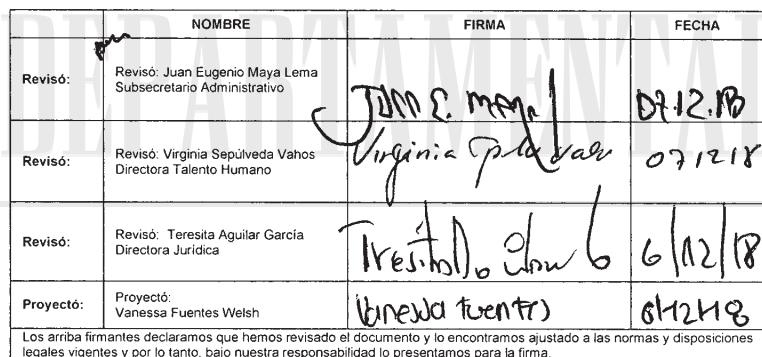 DEPARTAMENTAL
NOMBRE FIRMA FECHA
Revisó: Revisó: Juan Eugenio Maya Lema
Subsecretario Administrativo
Juan E. Maya 07.12.18
Revisó: Revisó: Virginia Sepúlveda Vahos
Directora Talento Humano
Virginia 071218
Revisó: Revisó: Teresita Aguilar García
Directora Jurídica
Teresita 6/12/18
Proyectó: Proyectó:
Vanessa Fuentes Welsh
Vanessa Fuentes 6/12/18
Los arriba firmantes declaramos que hemos revisado el documento y lo encontramos ajustado a las normas y disposiciones
legales vigentes y por lo tanto, bajo nuestra responsabilidad lo presentamos para la firma.